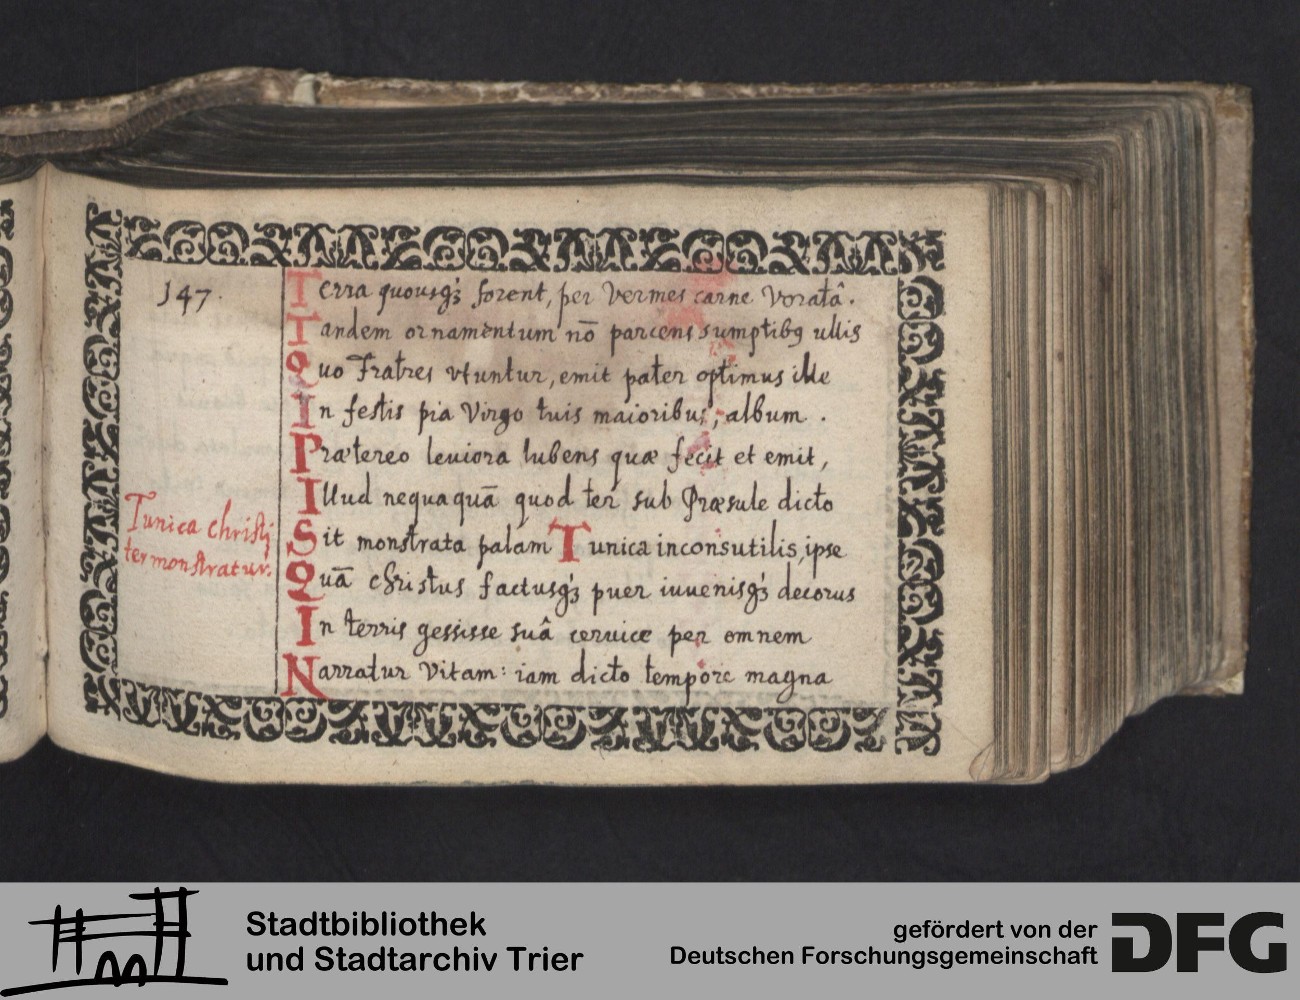 147.
Terra quousqꝫ forent, per Vermes carne Voratâ.
Tandem ornamentum nō parcens sumptibꝰ ullis
Quo Fratres vtuntur, emit pater optimus ille
In festis pia Virgo tuis maioribus, album.
Prætereo leuiora lubens quæ fecit et emit,
Illud nequaquā quod ter sub Præsule dicto
Tunica christi
Sit monstrata palam Tunica inconsutilis, ipse
ter monstratur.
Quā christus factusqꝫ puer iuuenisqꝫ decorus
In terris gessisse suâ ceruice per omnem
Narratur Vitam: iam dicto tempore magna
Stadtbibliothek
und Stadtarchiv Trier
gefördert von der
Deutschen Forschungsgemeinschaft
DFG